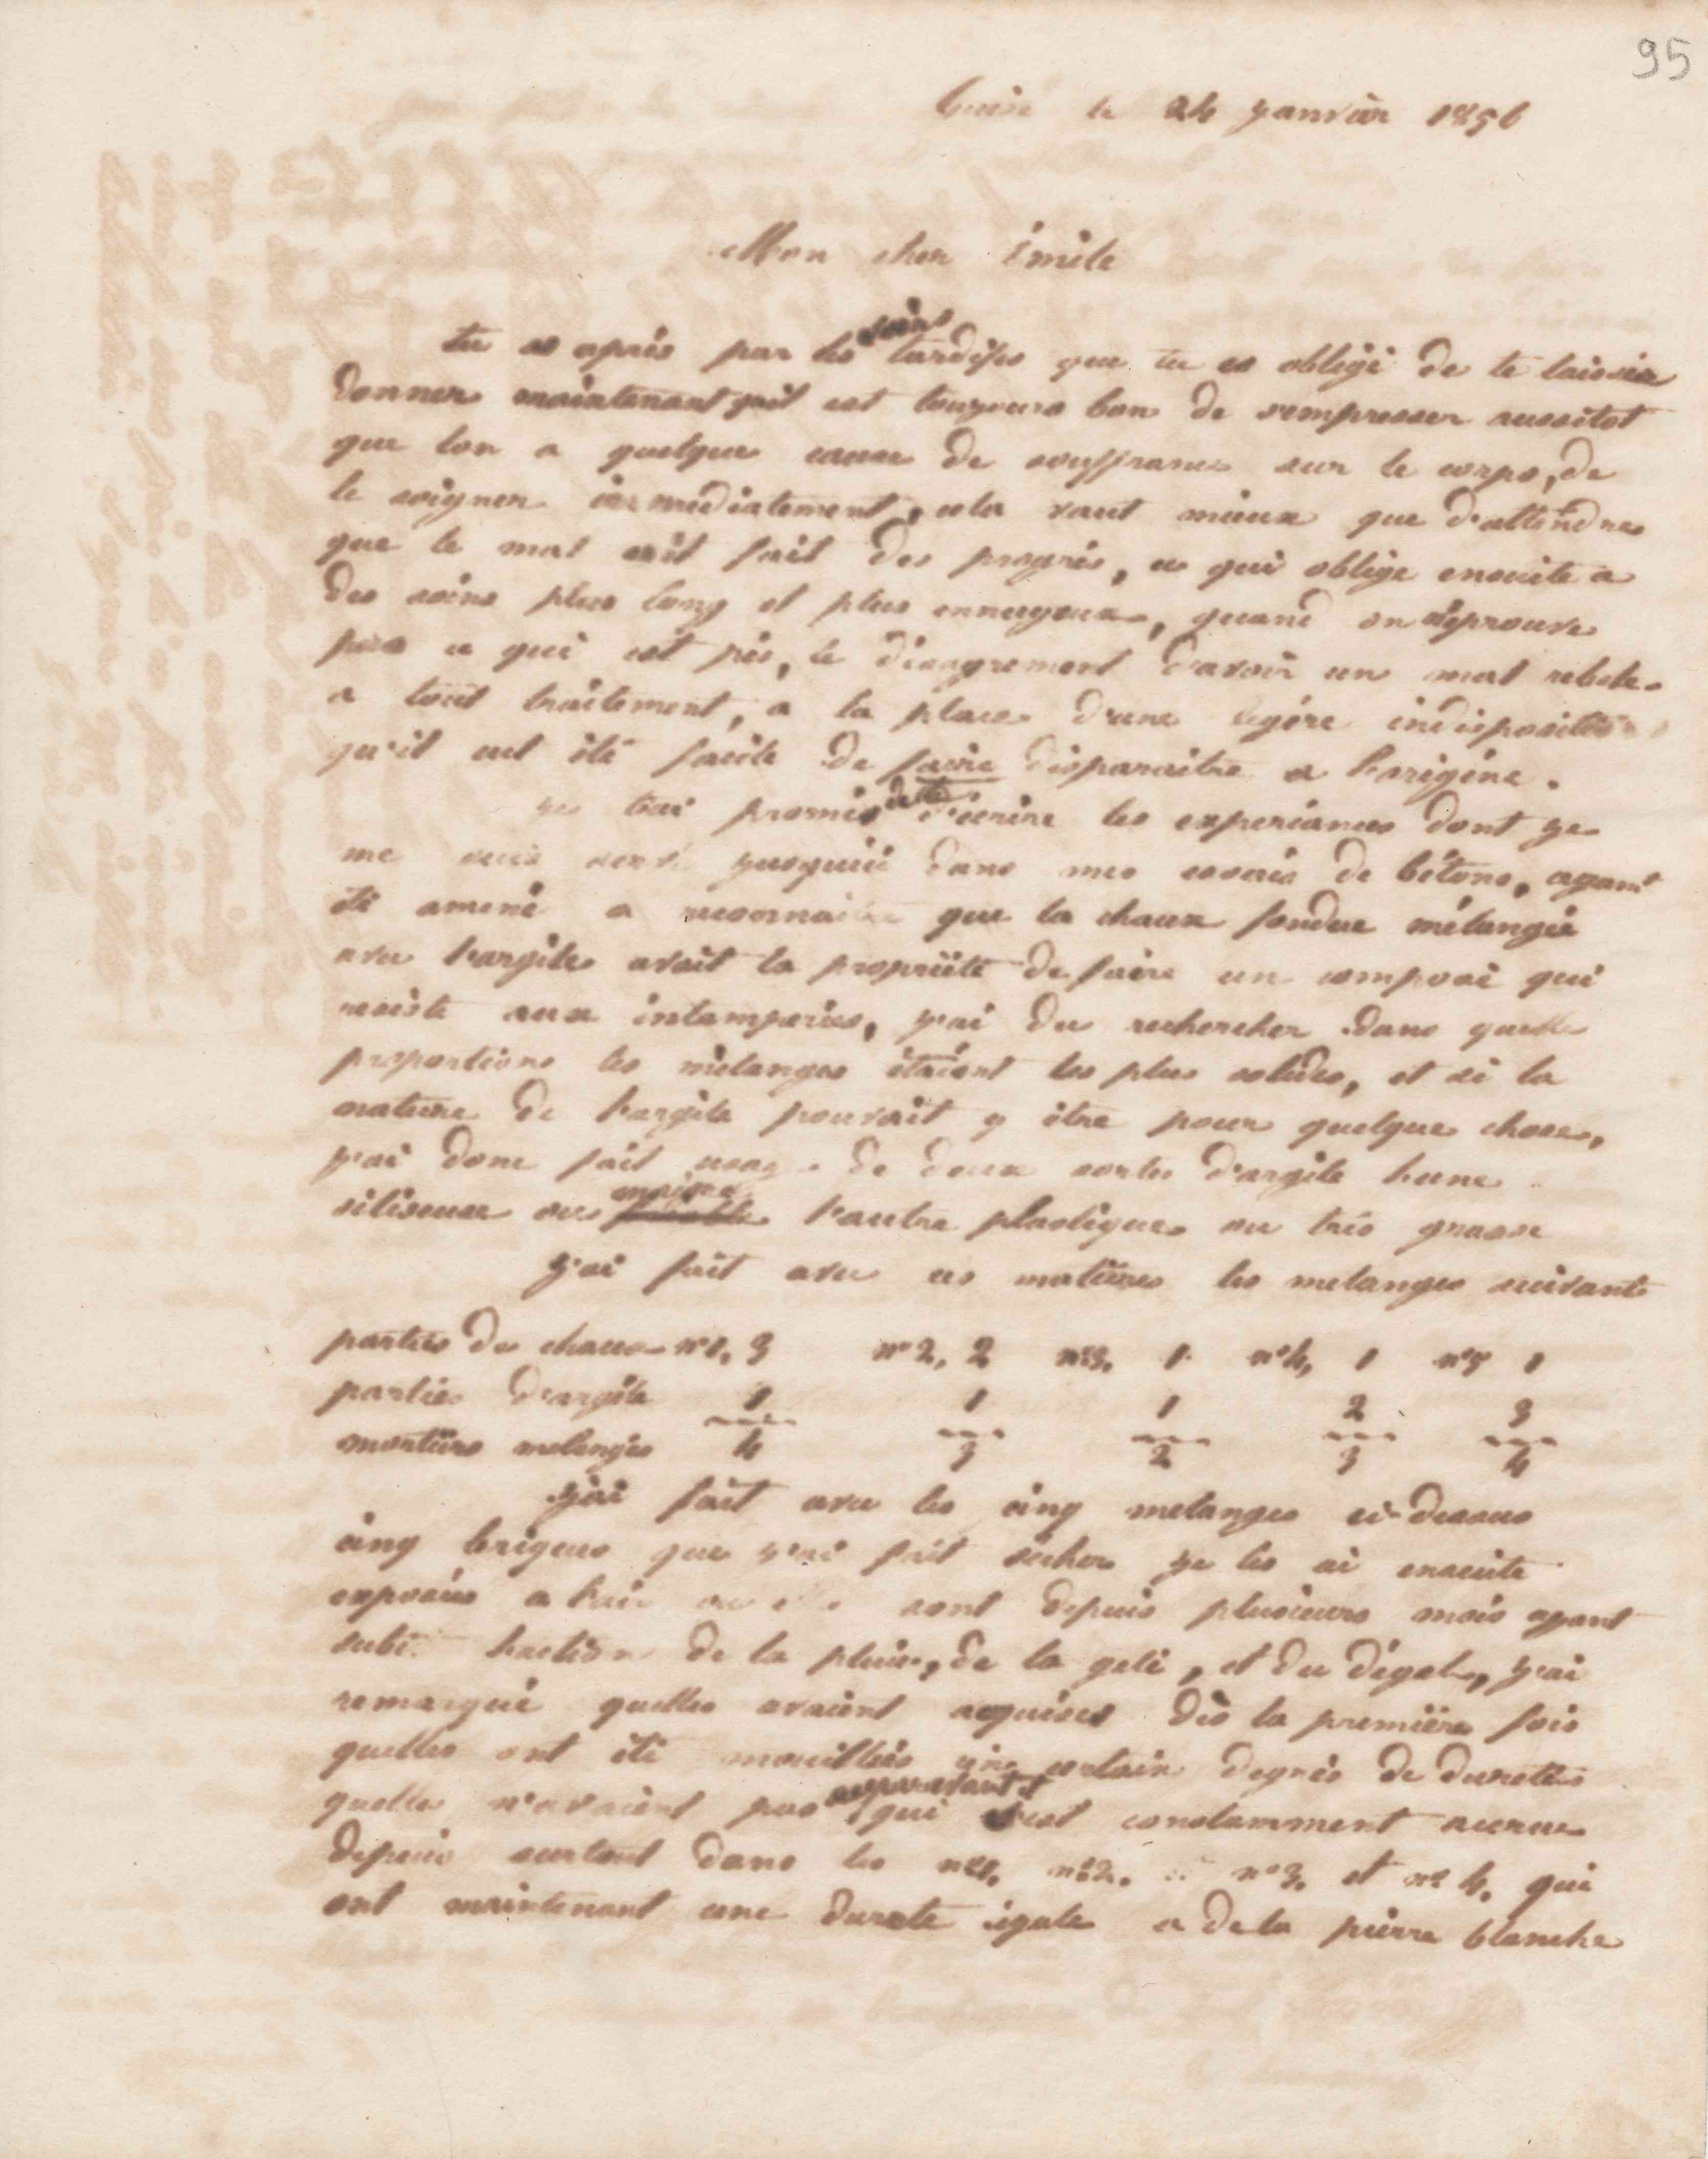 95
Guise le 24 janvier 1856
Mon cher Émile
soins
tu as apris par les tardifes que tu es obligé de te laisser
donner maintenant qu'il est toujours bon de s'empresser aussitot
que lon a quelque cause de souffrance sur le corps, de
le soigner immediatement, cela vaut mieux que d'attendre
que le mal ait fait des progrès, ce qui oblige ensuite a
des soins plus long et plus ennuyeux, quand on n'éprouve
pas ce qui est pis, le désagrement d'avoir un mal rebele
a tout traitement, a la place d'une legère indisposition
qu'il eut été facile de faire disparaitre a l'origine.
de te
je t'ai promis d'écrire les experiances dont je
me suis servi jusqu'ici dans mes essais de bétons, ayant
été amené a reconnaitre que la chaux fondue mélangée
avec l'argile avait la propriété de faire un composé qui
resiste aux intamperies, j'ai du rechercher dans quelle
proportions les mélanges étaient les plus solides, et si la
nature de l'argile pouvait y être pour quelque chose,
j'ai donc fait usage de deux sortes d'argile l'une
maigre
siliseuse ou l'autre plastique ou très grasse
j'ai fait avec ces matières les melanges suivants
parties de chaux n°1, 3 n°2, 2 n°3. 1 n°4, 1 n°5 1
parties d'argile 1 1 1 2 3
mortiers melangés 4 3 2 3 4
j'ai fait avec les cinq melanges ci-dessus
cinq briques que j'ai fait secher je les ai ensuite
exposées a l'air ou elles sont depuis plusieurs mois ayant
subi l'action de la pluie, de la gelé, et du dégel, j'ai
remarqué quelles avaient acquises dès la première fois
quelles ont été mouillées une certain degrés de dureté
auparavant
quelles n'avaient pas qui s'est constamment accrue
depuis surtout dans les n°1. n°2. n°3. et n° 4. qui
ont maintenant une dureté égale a de la pierre blanche